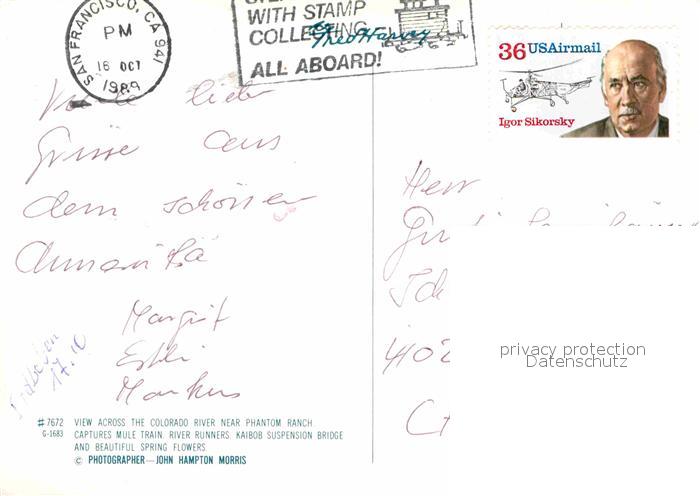 SAN FRANCISCO, CA 941
PM
16 OCT
1989
WITH STAMP
COLLECTING
ALL ABOARD!
36 USAirmail
Igor Sikorsky
Viele liebe
Grüsse aus
dem schönen
Margrit
Markus
Erdbeben
17.10
Herr
privacy protection
Datenschutz
#7672 VIEW ACROSS THE COLORADO RIVER NEAR PHANTOM RANCH
G-1683 CAPTURES MULE TRAIN, RIVER RUNNERS, KAIBOB SUSPENSION BRIDGE
AND BEAUTIFUL SPRING FLOWERS.
© PHOTOGRAPHER—JOHN HAMPTON MORRIS